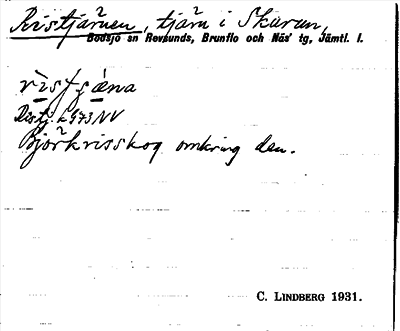 Ristjärnen, tjärn i Skurun,
Bodsjö sn Revsunds, Brunflo och Näs' tg, Jämtl. l.
Björkrisskog omkring den.
C. LINDBERG 1931.